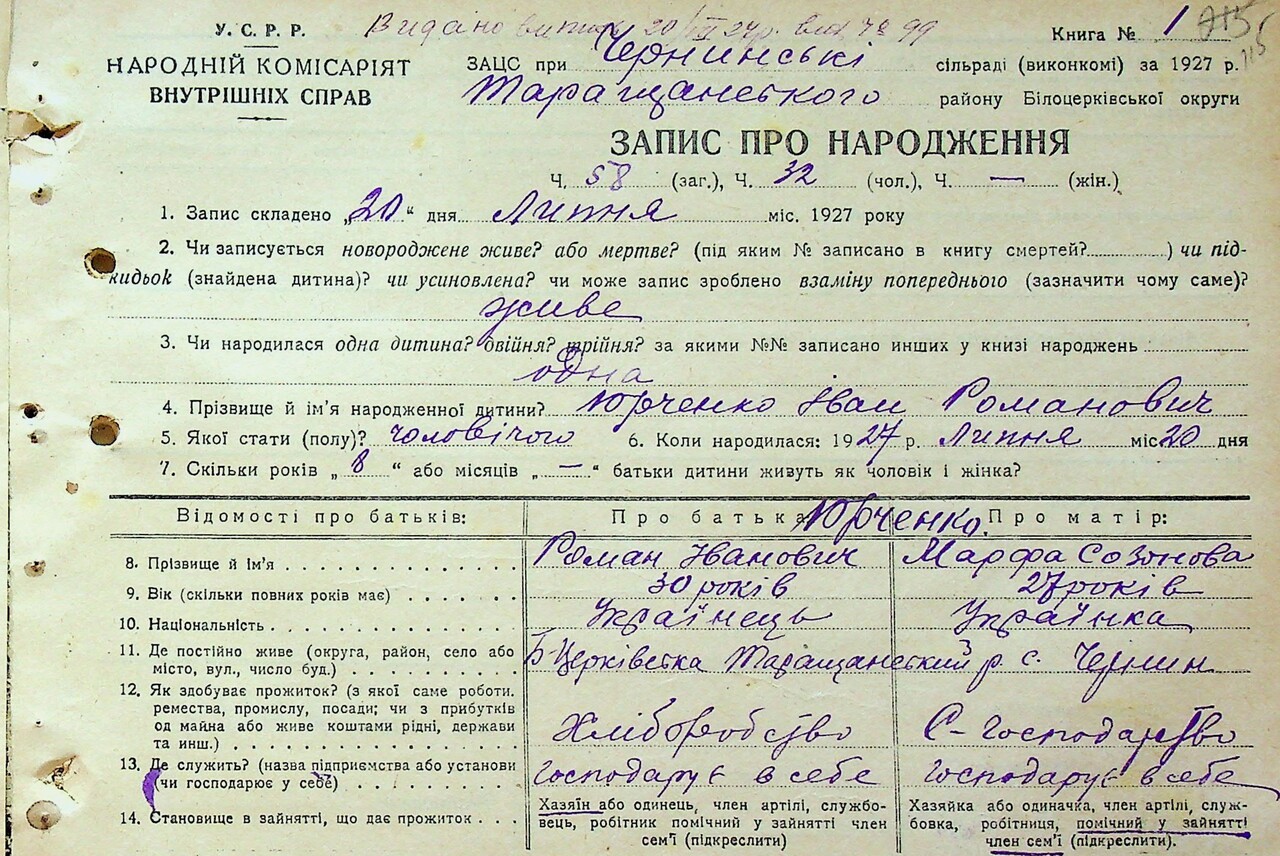 Видано випис 20/
У. С. Р. Р.
НАРОДНІЙ КОМІСАРІЯТ
ВНУТРІШНІХ СПРАВ
Книга № 1
ЗАЦС при Чернинські сільраді (виконкомі) за 1927 р.
Таращанського району Білоцерківської округи
ЗАПИС ПРО НАРОДЖЕННЯ
Ч. 58 (заг.), Ч. 32 (чол.), Ч. — (жін.)
1. Запис складено „20“ дня Липня міс. 1927 року
2. Чи записується новороджене живе? або мертве? (під яким № записано в книгу смертей?..........) чи під-
кидьок (знайдена дитина)? чи усиновлена? чи може запис зроблено взаміну попереднього (зазначити чому саме)?
живе
3. Чи народилася одна дитина? двійня? трійня? за якими №№ записано инших у книзі народжень
одна
4. Прізвище й ім'я народженної дитини? Юрченко Іван Романович
5. Якої стати (полу)? чоловічого 6. Коли народилася: 1927 р. Липня міс 20 дня
7. Скільки років „8“ або місяців „—“ батьки дитини живуть як чоловік і жінка?
Відомості про батьків: Про батька: Юрченко. Про матір:
8. Прізвище й ім'я Роман Іванович Марфа Созонова
9. Вік (скільки повних років має) 30 років 27 років
10. Національність Українець Українка
11. Де постійно живе (округа, район, село або
місто, вул., число буд.) Б Церківська Таращанський р. с. Чернин
12. Як здобуває прожиток? (з якої саме роботи.
ремества, промислу, посади; чи з прибутків
од майна або живе коштами рідні, держави
та инш.) Хліборобство С-господарство
13. Де служить? (назва підприємства або установи
(чи господарює у себе) господарує в себе господарує в себе
14. Становище в зайнятті, що дає прожиток
Хазяїн або одинець, член артілі, службо-
вець, робітник помічний у зайнятті член
сем'ї (підкреслити)
Хазяйка або одиначка, член артілі, служ-
бовка, робітниця, помічний у зайнятті
член сем'ї (підкреслити).